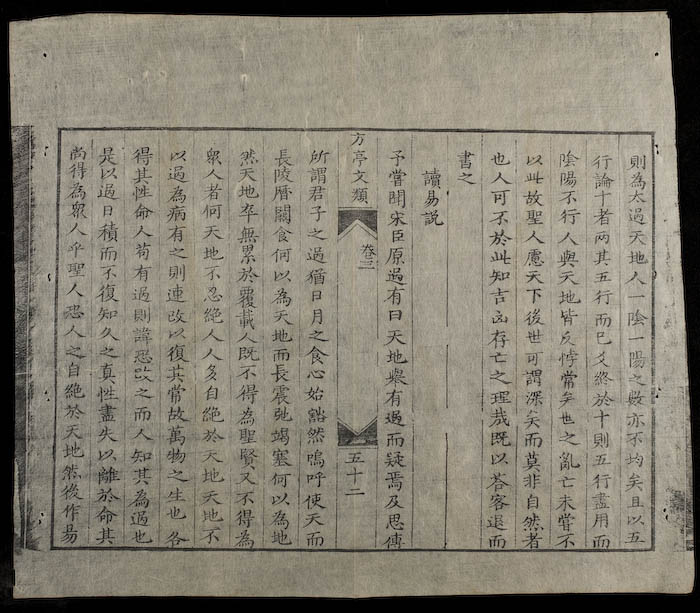 則為太過天地人一陰一陽之數亦不均矣且以五
行論十者兩其五行而已爻終於十則五行盡用而
陰陽不行人與天地皆反悖常矣世之亂亡未嘗不
以此故聖人慮天下後世可謂深矣而莫非自然者
也人可不於此知吉凶存亡之理哉既以荅客退而
書之
讀易説
予嘗聞宋臣原過有曰天地舉有過而疑焉及思傳
方亭文類 卷三 五十二
所謂君子之過猶日月之食心始豁然嗚呼使天而
長陵厝鬬食何以為天地而長震弛竭塞何以為地
然天地卒無累於覆載人既不得為聖賢又不得為
衆人者何天地不忍絶人人多自絶於天地天地不
以過為病有之則速改以復其常故萬物之生也各
得其性命人苟有過則諱惡改之而人知其為過也
是以過日積而不復知久之真性盡失以離於命其
尚得為衆人乎聖人恐人之自絶於天地然後作易